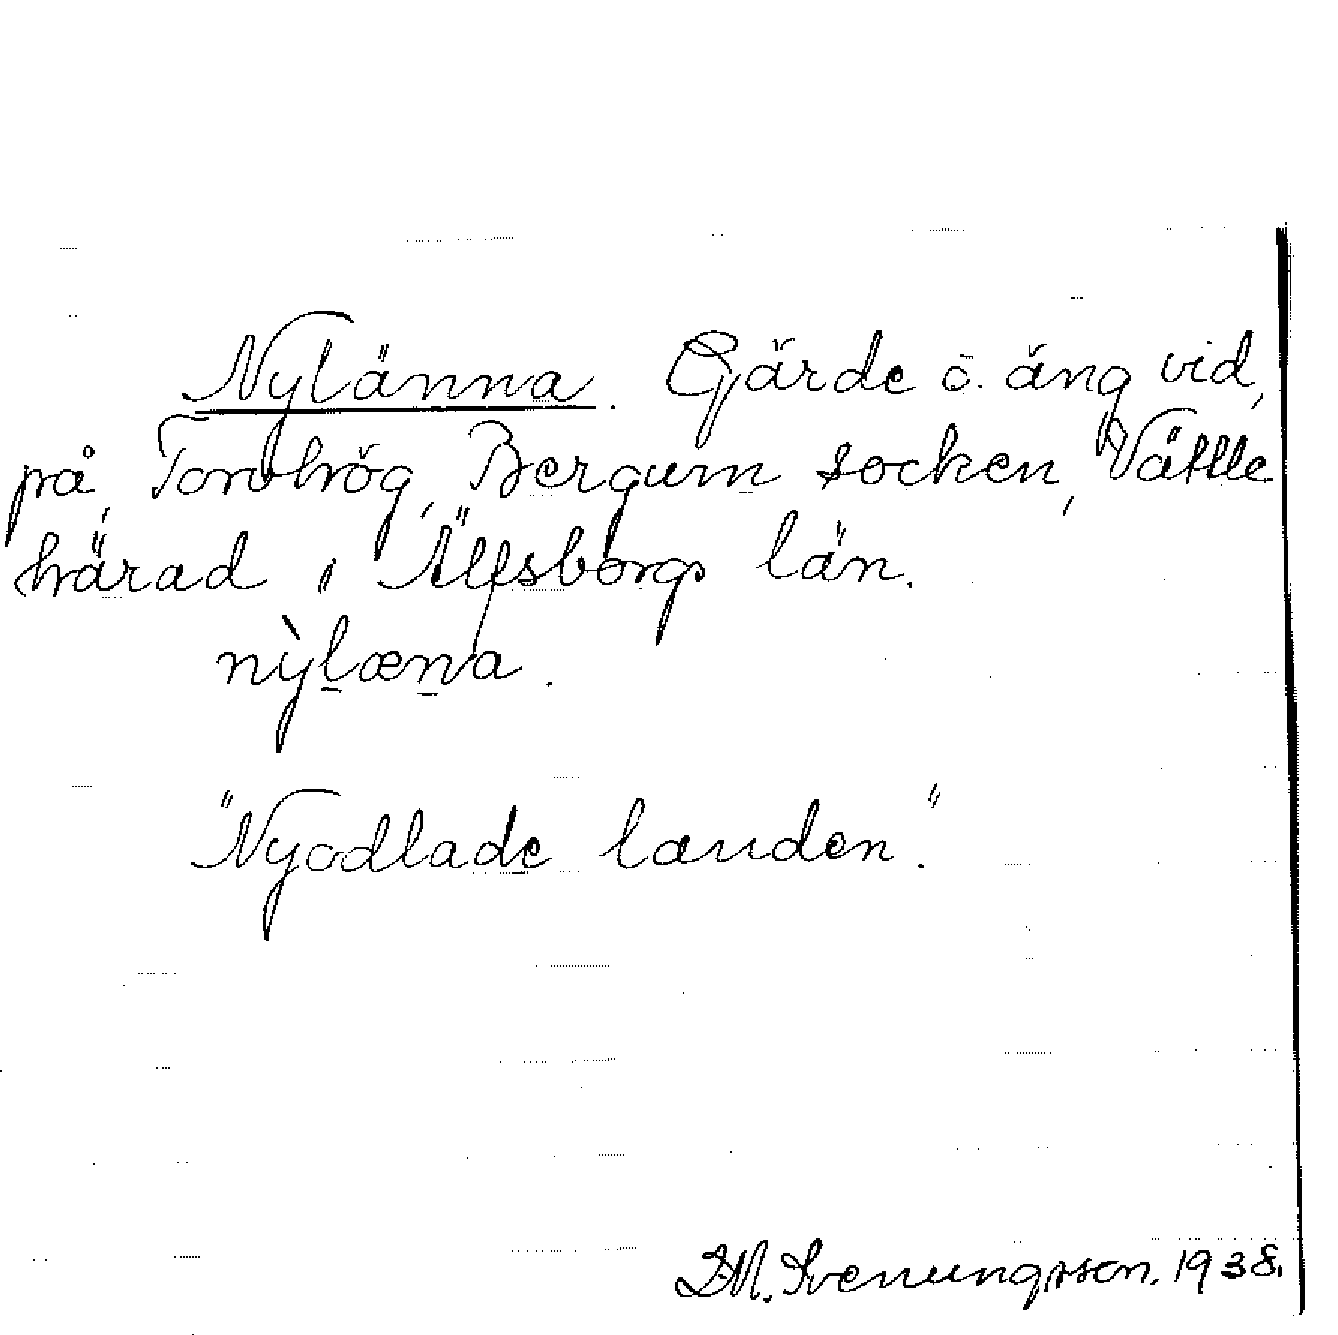 Nylänna. Gärde o. äng vid,
på, Torvhög, Bergum socken, Vättle
härad i Älfsborgs län.
nỳlæna.
"Nyodlade landen."
D.M. Svenungsson. 1938.